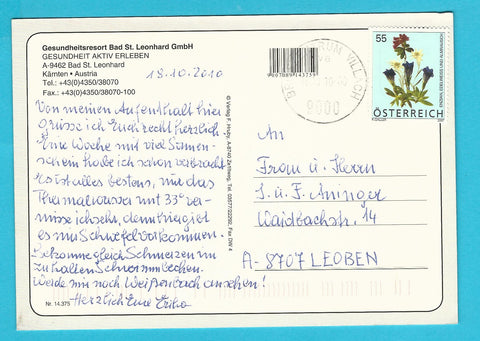 Gesundheitsresort Bad St. Leonhard GmbH
GESUNDHEIT AKTIV ERLEBEN
A-9462 Bad St. Leonhard
Kärnten • Austria
Tel.: +43(0)4350/38070
Fax.: +43(0)4350/38070-100
18.10.2010
Von meinen Aufenthalt hier
grüsse ich Euch recht herzlich
Eine Woche mit viel Sonnen-
schein habe ich schon verbracht
es ist alles bestens, nur das
Thermalwasser mit 33° ver-
misse ich sehr, denn hier gibt
es nur Schwefelvorkommen.
Bekomme gleich Schmerzen im
Werde mir noch Weißenbach ansehen!
Herzlich Eure Erika
Nr. 14.375
© Verlag F. A-8740 Zeltweg, Tel. 03577/22292, Fax DW 4
9000
55
ENZIAN, EDELWEISS UND ALMRAUSCH
ÖSTERREICH
An
Frau u. Herrn
I. u. F. Aninger
Waidbachstr. 14
A-8707 LEOBEN